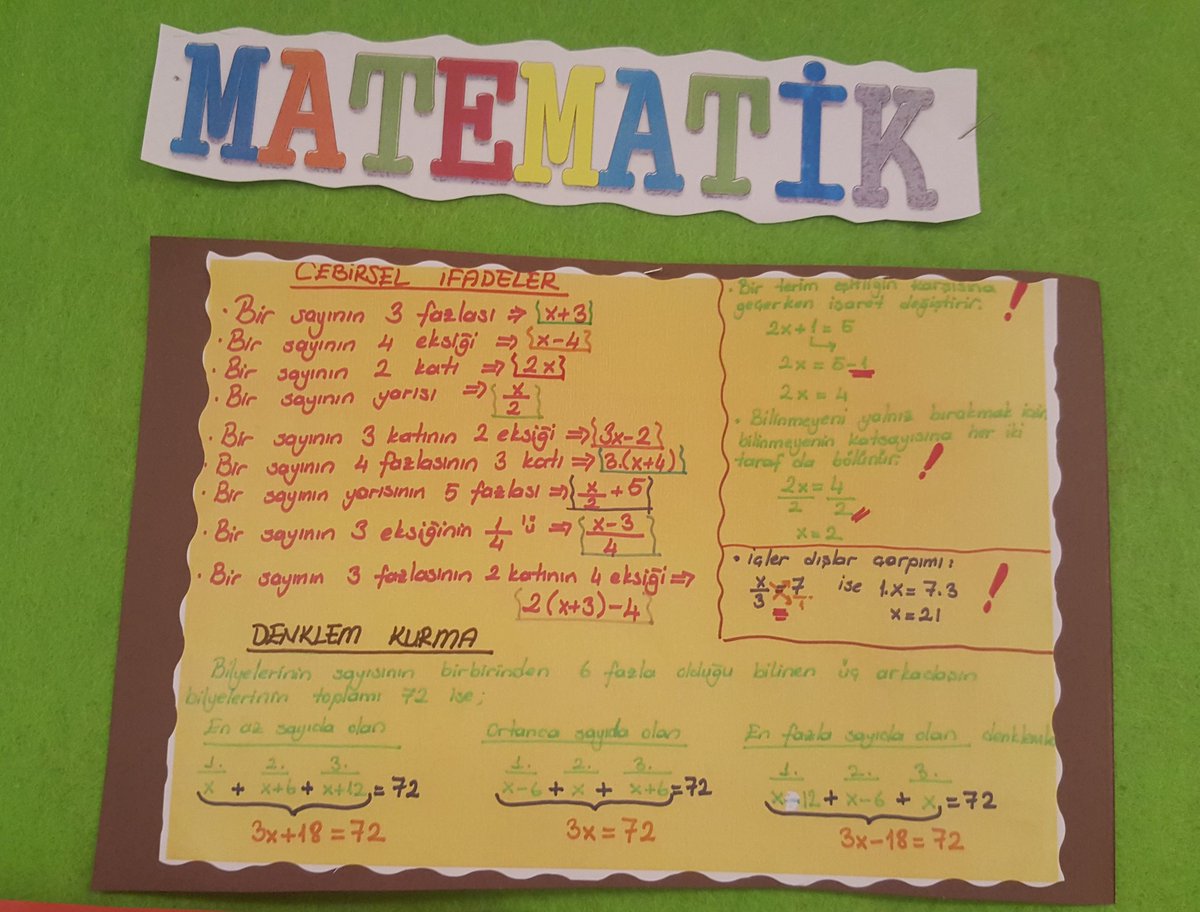 MATEMATİK
CEBİRSEL İFADELER
• Bir sayının 3 fazlası ⇒ {x+3}
• Bir sayının 4 eksiği ⇒ {x-4}
• Bir sayının 2 katı ⇒ {2x}
• Bir sayının yarısı ⇒ {x/2}
• Bir sayının 3 katının 2 eksiği ⇒ {3x-2}
• Bir sayının 4 fazlasının 3 katı ⇒ {3.(x+4)}
• Bir sayının yarısının 5 fazlası ⇒ {x/2 + 5}
• Bir sayının 3 eksiğinin 1/4 'ü ⇒ {x-3/4}
• Bir sayının 3 fazlasının 2 katının 4 eksiği ⇒
{2(x+3)-4}
• Bir terim eşitliğin karşısına
geçerken işaret değiştirir. !
2x+1=5
2x=5-1
2x=4
• Bilinmeyeni yalnız bırakmak için
bilinmeyenin katsayısına her iki
taraf da bölünür. !
2x/2 = 4/2
x=2
• içler dışlar çarpımı:
x/3 = 7/1 ise 1.x=7.3 !
x=21
DENKLEM KURMA
Bilyelerinin sayısının birbirinden 6 fazla olduğu bilinen üç arkadaşın
bilyelerinin toplamı 72 ise;
En az sayıda olan Ortanca sayıda olan En fazla sayıda olan
1. 2. 3. 1. 2. 3. 1. 2. 3.
x + x+6 + x+12 = 72 x-6 + x + x+6 = 72 x-12 + x-6 + x = 72
3x+18=72 3x=72 3x-18=72